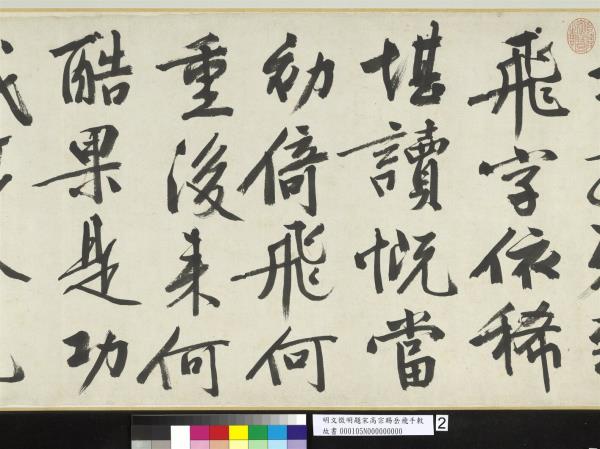 飛字依稀
堪讀慨當
初倚飛何
重後来何
酷果是功
明文徵明題宋高宗賜岳飛手敕
故書 000105N000000000
2